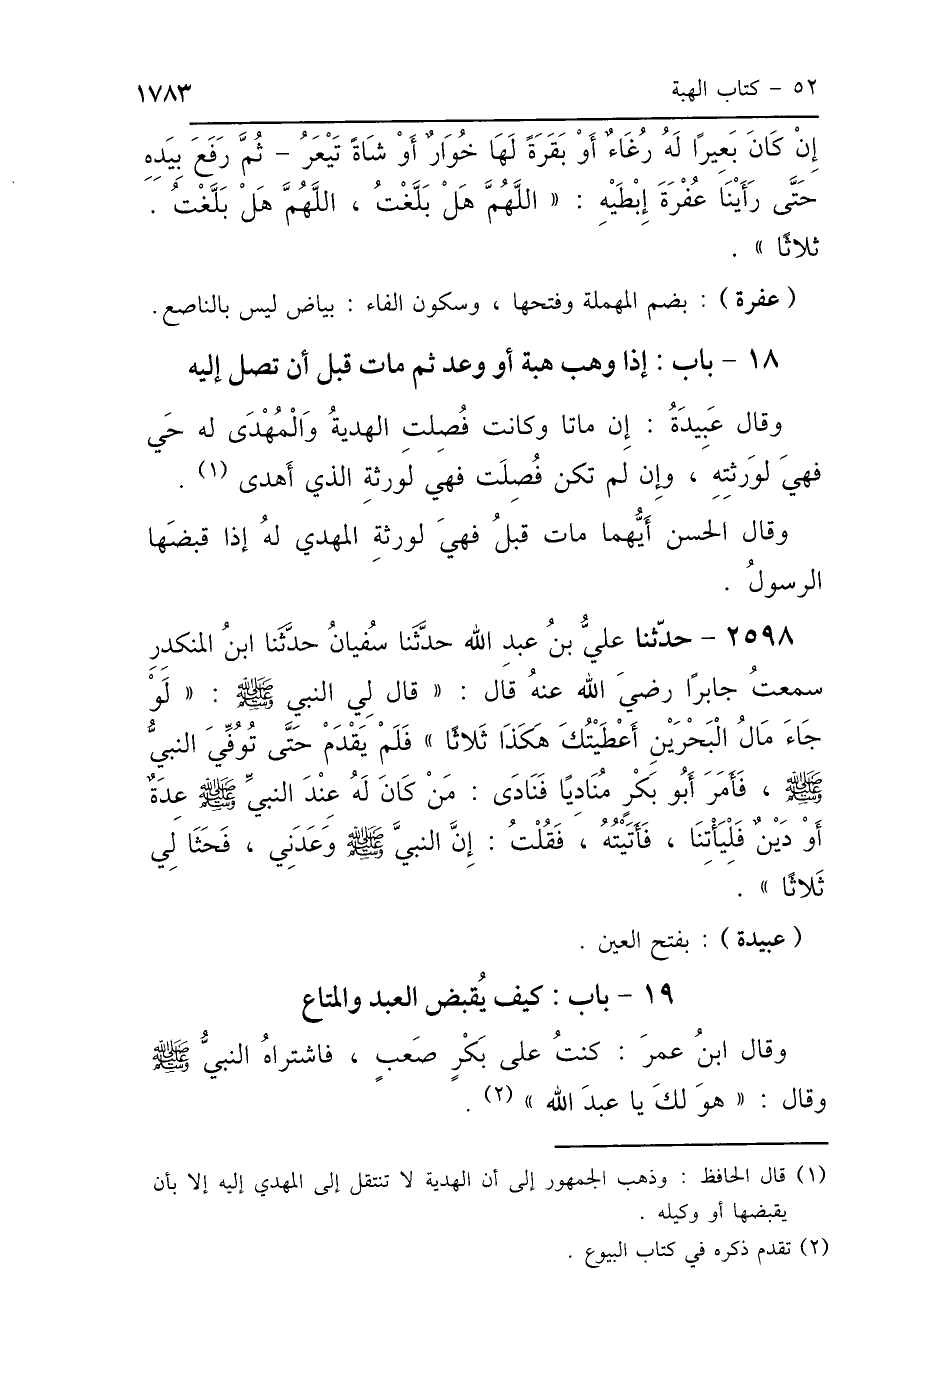 ٥٢ - كتاب الهبة ١٧٨٣
إِنْ كَانَ بَعِيرًا لَهُ رُغَاءٌ أَوْ بَقَرَةً لَهَا خُوَارٌ أَوْ شَاةً تَيْعَرُ - ثُمَّ رَفَعَ بِيَدِهِ
حَتَّى رَأَيْنَا عُفْرَةَ إِبْطَيْهِ : « اللَّهُمَّ هَلْ بَلَّغْتُ ، اللَّهُمَّ هَلْ بَلَّغْتُ .
ثلاثًا » .
( عفرة ) : بضم المهملة وفتحها ، وسكون الفاء : بياض ليس بالناصع .
١٨ - باب : إذا وهب هبة أو وعد ثم مات قبل أن تصل إليه
وقال عَبِيدَةُ : إن ماتا وكانت فُصِلتِ الهديةُ وَالْمُهْدَى له حَي
فهيَ لوَرَثتِهِ ، وإن لم تكن فُصِلَت فهي لورثةِ الذي أَهدى (١) .
وقال الحسن أَيُّهما مات قبلُ فهيَ لورثةِ المهدي لهُ إذا قبضَها
الرسولُ .
٢٥٩٨ - حدّثنا عليُّ بنُ عبدِ الله حدَّثَنا سُفيانُ حدَّثَنا ابنُ المنكدِرِ
سمعتُ جابرًا رضيَ الله عنهُ قال : « قال لِي النبي ﷺ : « لَوْ
جَاءَ مَالُ الْبَحْرَيْنِ أَعْطَيْتُكَ هكَذَا ثَلاثًا » فَلَمْ يَقْدَمْ حَتَّى تُوُفِّيَ النبيُّ
ﷺ ، فَأَمَرَ أَبُو بَكْرٍ مُنَاديًا فَنَادَى : مَنْ كَانَ لَهُ عِنْدَ النبيِّ ﷺ عِدَةٌ
أَوْ دَيْنٌ فَلْيَأْتِنَا ، فَأَتَيْتُهُ ، فَقُلْتُ : إِنَّ النبيَّ ﷺ وَعَدَنِي ، فَحَثَا لِي
ثَلاثًا » .
( عبيدة ) : بفتح العين .
١٩ - باب : كيف يُقبض العبد والمتاع
وقال ابنُ عمرَ : كنتُ على بَكْرٍ صَعبٍ ، فاشتراهُ النبيُّ ﷺ
وقال : « هوَ لكَ يا عبدَ الله » (٢) .
(١) قال الحافظ : وذهب الجمهور إلى أن الهدية لا تنتقل إلى المهدي إليه إلا بأن
يقبضها أو وكيله .
(٢) تقدم ذكره في كتاب البيوع .